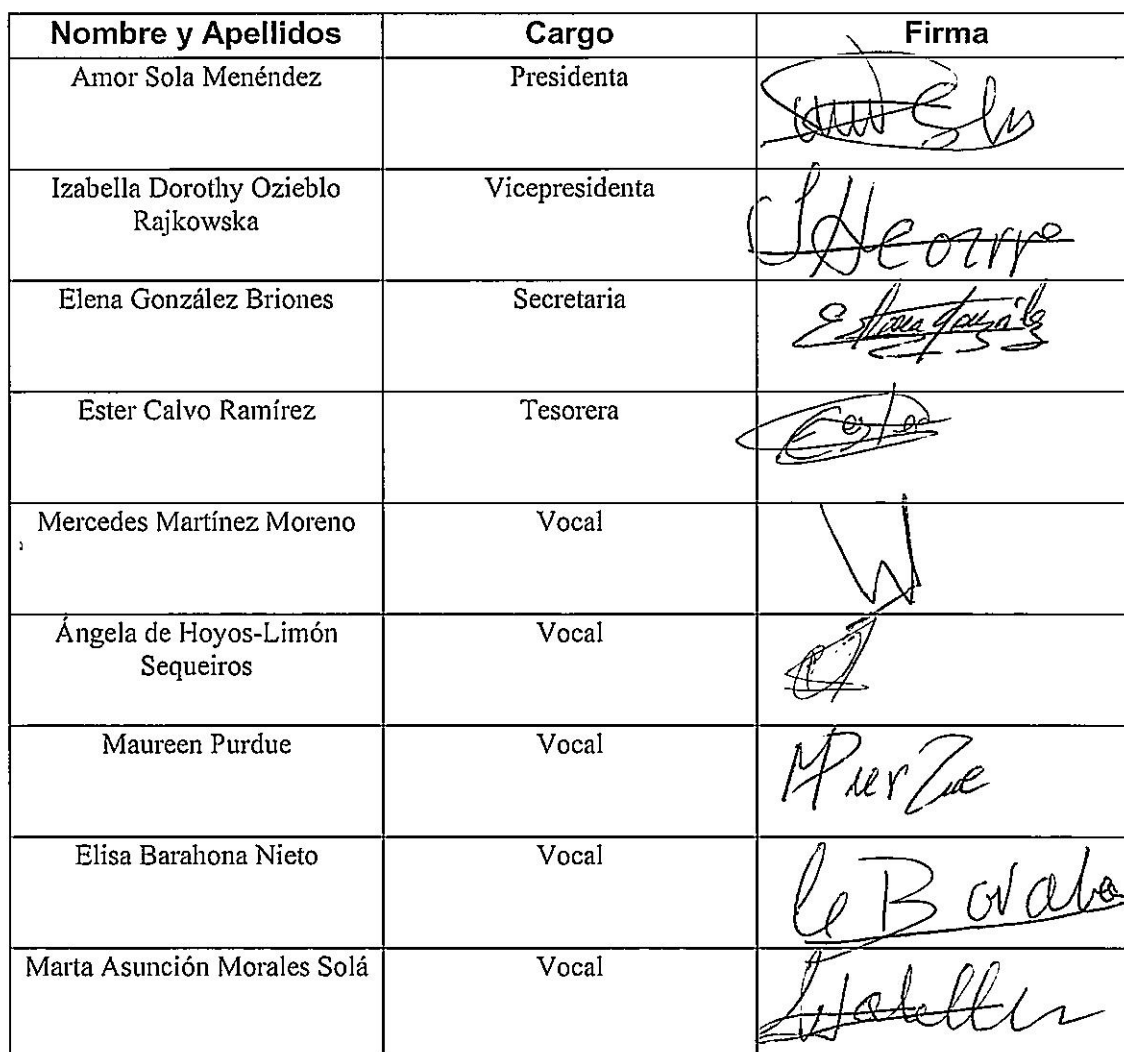 Nombre y Apellidos Cargo Firma
Amor Sola Menéndez Presidenta
Izabella Dorothy Ozieblo Vicepresidenta
Rajkowska
Elena González Briones Secretaria
Ester Calvo Ramírez Tesorera
Mercedes Martínez Moreno Vocal
Ángela de Hoyos-Limón Vocal
Sequeiros
Maureen Purdue Vocal
Elisa Barahona Nieto Vocal
Marta Asunción Morales Solá Vocal